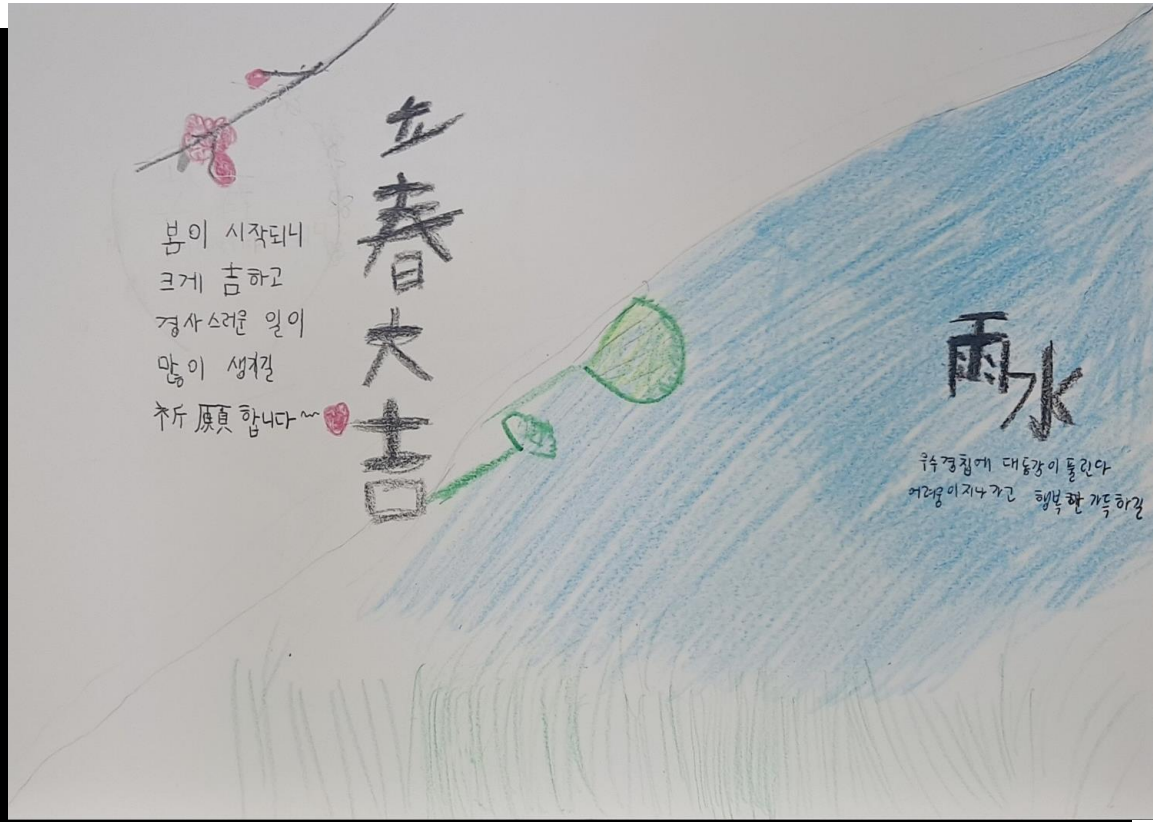 立春大吉
봄이 시작되니
크게 吉하고
경사스러운 일이
많이 생기길
祈願합니다~
雨水
우수경칩에 대동강이 풀린다
어려움이 지나가고 행복한 가득하길